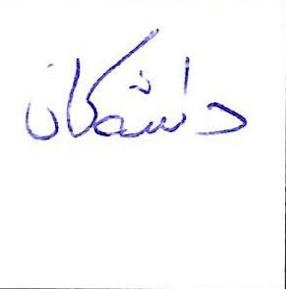 داشکان